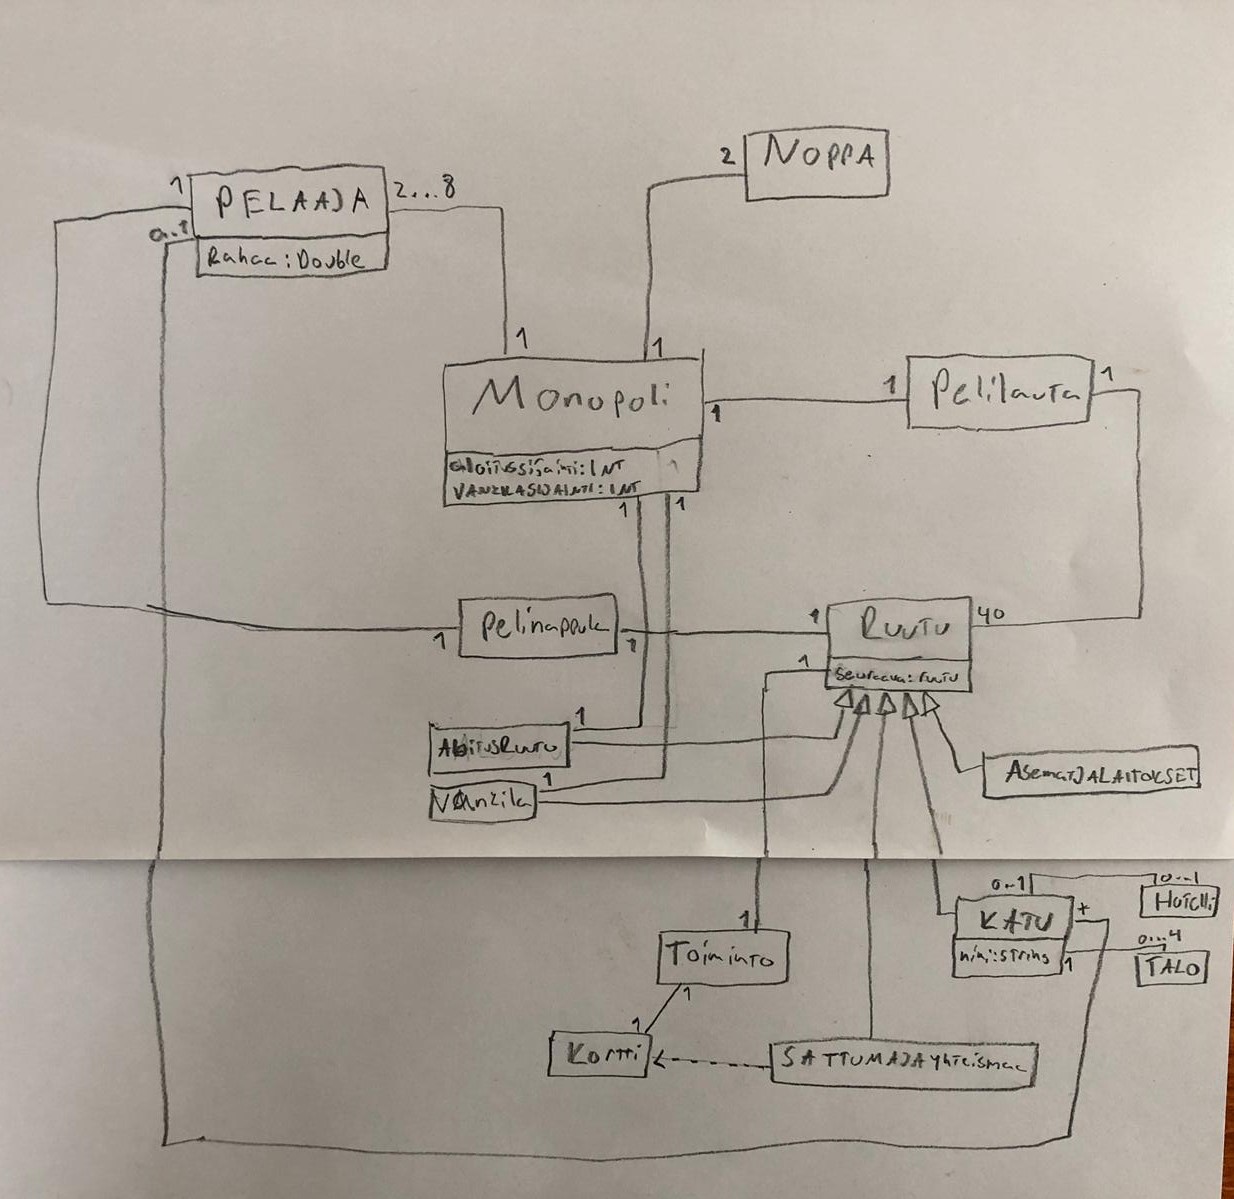 2
NOPPA
1
PELAAJA
2...8
0..1
Rahaa:Double
1
1
Monopoli
1
1
Pelilauta
1
VANKILASIJAINTI:INT
1
1
1
Pelinappula
1
Ruutu
40
1
seuraava:ruutu
1
AloitusRuutu
1
Vankila
AsematJALAITOKSET
0..1
0...1
Hotelli
KATU
0...4
nimi:string
1
TALO
1
Toiminto
1
1
Kortti
SATTUMAJAyhteismaa